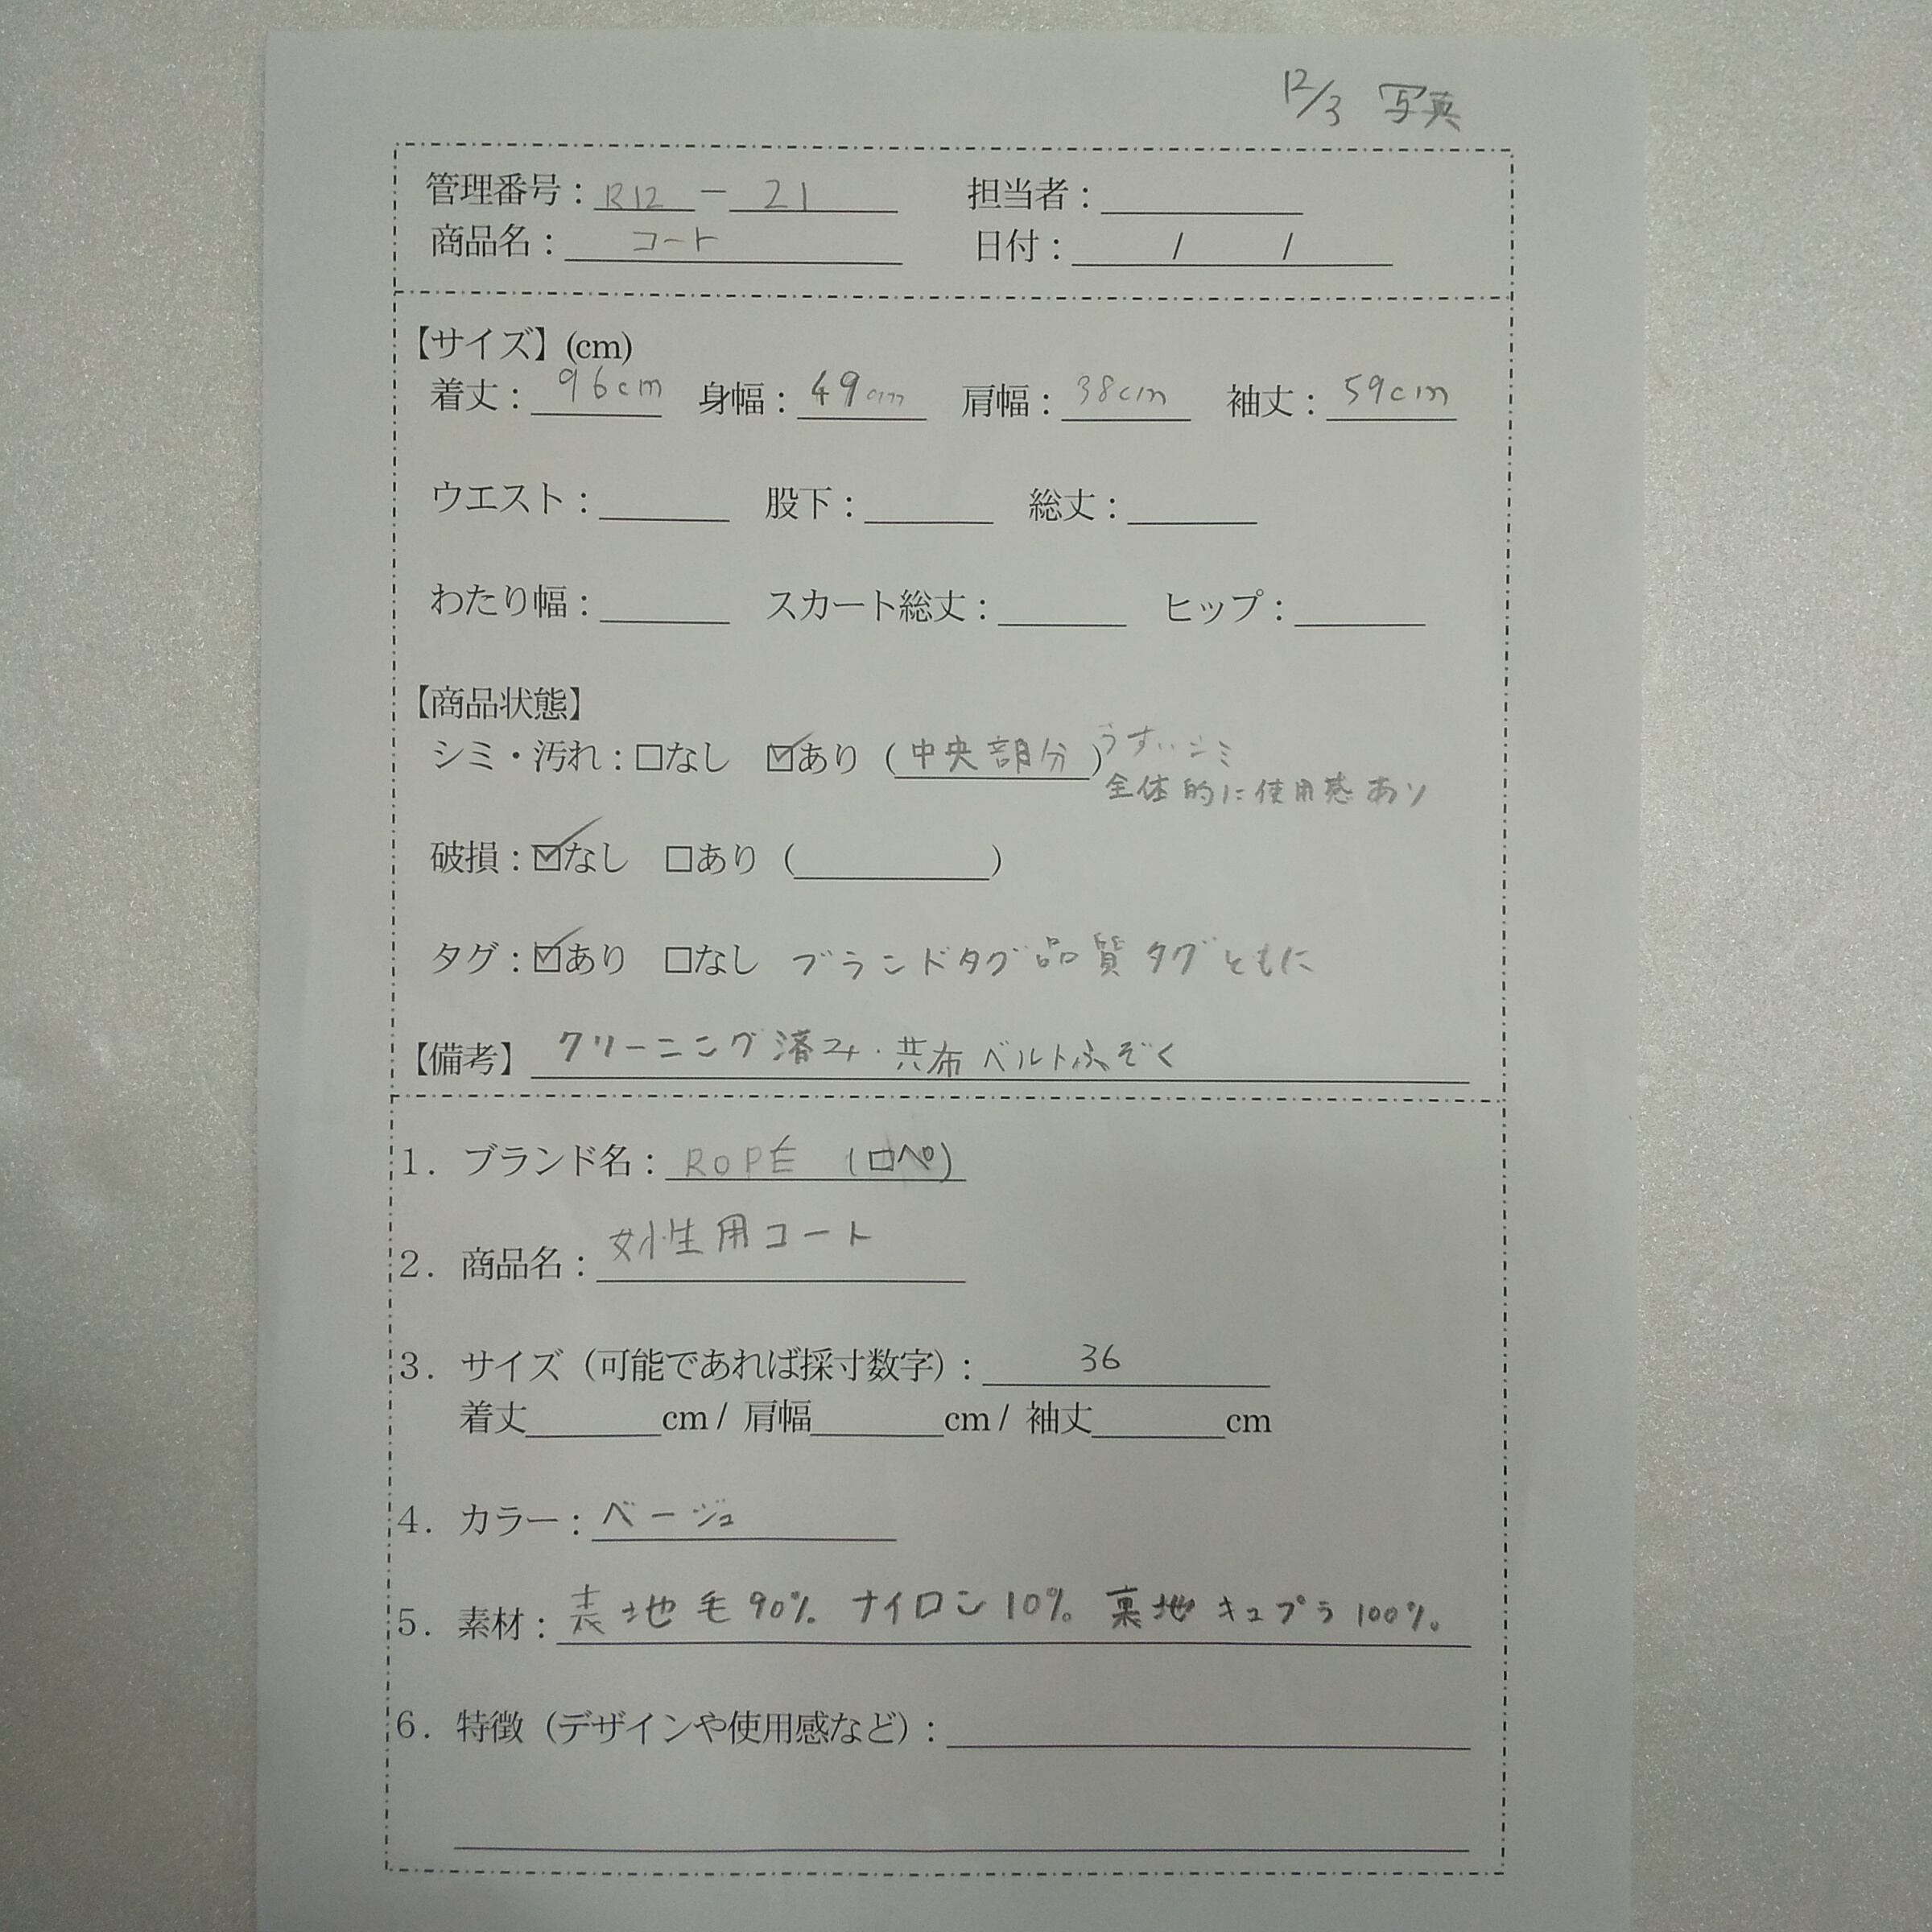 12/3 写真
管理番号：R12 － 21 担当者：
商品名：コート 日付： / /
【サイズ】(cm)
着丈：96cm 身幅：49cm 肩幅：38cm 袖丈：59cm
ウエスト： 股下： 総丈：
わたり幅： スカート総丈： ヒップ：
【商品状態】
シミ・汚れ：□なし ☑あり（中央部分）うすいシミ
全体的に使用感あり
破損：☑なし □あり（ ）
タグ：☑あり □なし ブランドタグ品質タグともに
【備考】クリーニング済み・共布ベルトふぞく
1．ブランド名：ROPÉ （ロペ）
2．商品名：女性用コート
3．サイズ（可能であれば採寸数字）：36
着丈 cm / 肩幅 cm / 袖丈 cm
4．カラー：ベージュ
5．素材：表地毛90% ナイロン10% 裏地キュプラ100%
6．特徴（デザインや使用感など）：